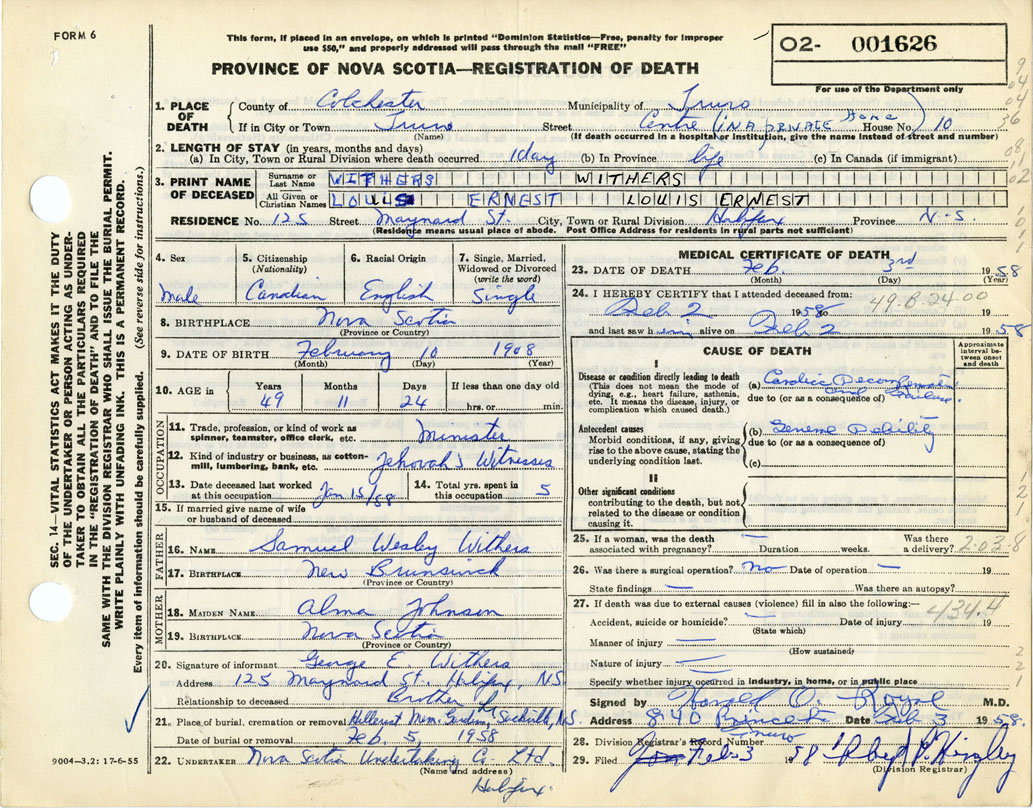 FORM 6
This form, if placed in an envelope, on which is printed "Dominion Statistics—Free, penalty for improper
use $50," and properly addressed will pass through the mail "FREE"
O2- 001626
For use of the Department only
PROVINCE OF NOVA SCOTIA—REGISTRATION OF DEATH
1. PLACE OF DEATH
County of Colchester Municipality of Truro
If in City or Town Truro Street Centre (IN A PRIVATE Home) House No. 10
(Name) (If death occurred in a hospital or institution, give the name instead of street and number)
2. LENGTH OF STAY (in years, months and days)
(a) In City, Town or Rural Division where death occurred 1 day (b) In Province life (c) In Canada (if immigrant)
3. PRINT NAME OF DECEASED
Surname or Last Name WITHERS WITHERS
All Given or Christian Names LOUIS ERNEST LOUIS ERNEST
RESIDENCE No. 125 Street Maynard St. City, Town or Rural Division Halifax Province N.S.
(Residence means usual place of abode. Post Office Address for residents in rural parts not sufficient)
4. Sex Male
5. Citizenship (Nationality) Canadian
6. Racial Origin English
7. Single, Married, Widowed or Divorced (write the word) Single
8. BIRTHPLACE Nova Scotia
(Province or Country)
9. DATE OF BIRTH February 10 1908
(Month) (Day) (Year)
10. AGE in Years 49 Months 11 Days 24 If less than one day old hrs. or min.
OCCUPATION
11. Trade, profession or kind of work as spinner, teamster, office clerk, etc. Minister
12. Kind of industry or business, as cotton-mill, lumbering, bank, etc. Jehovah's Witnesses
13. Date deceased last worked at this occupation Jan 15/58
14. Total yrs. spent in this occupation 5
15. If married give name of wife or husband of deceased
FATHER
16. NAME Samuel Wesley Withers
17. BIRTHPLACE New Brunswick
(Province or Country)
MOTHER
18. MAIDEN NAME Alma Johnson
19. BIRTHPLACE Nova Scotia
(Province or Country)
20. Signature of informant George E. Withers
Address 125 Maynard St. Halifax, N.S.
Relationship to deceased Brother
21. Place of burial, cremation or removal Hillcrest Mem. Gardens, Sackville, N.S.
Date of burial or removal Feb. 5, 1958
22. UNDERTAKER Nova Scotia Undertaking Co. Ltd.
(Name and address)
Halifax
9004—3.2: 17-6-55
MEDICAL CERTIFICATE OF DEATH
23. DATE OF DEATH Feb. 3rd 1958
(Month) (Day) (Year)
24. I HEREBY CERTIFY that I attended deceased from:
49.8.24.00
Feb 2 1958 to 19
and last saw him alive on Feb 2 1958
CAUSE OF DEATH
Approximate interval between onset and death
I
Disease or condition directly leading to death
(This does not mean the mode of dying, e.g., heart failure, asthenia, etc. It means the disease, injury, or complication which caused death.)
(a) Cardiac Decompensation and Failure.
due to (or as a consequence of)
Antecedent causes
Morbid conditions, if any, giving rise to the above cause, stating the underlying condition last.
(b) General Debility
due to (or as a consequence of)
(c)
II
Other significant conditions
contributing to the death, but not related to the disease or condition causing it.
25. If a woman, was the death associated with pregnancy? — Duration weeks. Was there a delivery?
2-03-8
26. Was there a surgical operation? No Date of operation — 19
State findings — Was there an autopsy?
27. If death was due to external causes (violence) fill in also the following:—
434.4
Accident, suicide or homicide? — Date of injury 19
(State which)
Manner of injury —
(How sustained)
Nature of injury —
Specify whether injury occurred in industry, in home, or in public place
Signed by Harold O. Royal M.D.
Address 840 Prince St Truro Date Feb 3 1958.
28. Division Registrar's Record Number
29. Filed Feb 3 1958
(Division Registrar)
SEC. 14—VITAL STATISTICS ACT MAKES IT THE DUTY
OF THE UNDERTAKER OR PERSON ACTING AS UNDER-
TAKER TO OBTAIN ALL THE PARTICULARS REQUIRED
IN THE "REGISTRATION OF DEATH" AND TO FILE THE
SAME WITH THE DIVISION REGISTRAR WHO SHALL ISSUE THE BURIAL PERMIT.
WRITE PLAINLY WITH UNFADING INK. THIS IS A PERMANENT RECORD.
Every item of information should be carefully supplied. (See reverse side for instructions.)